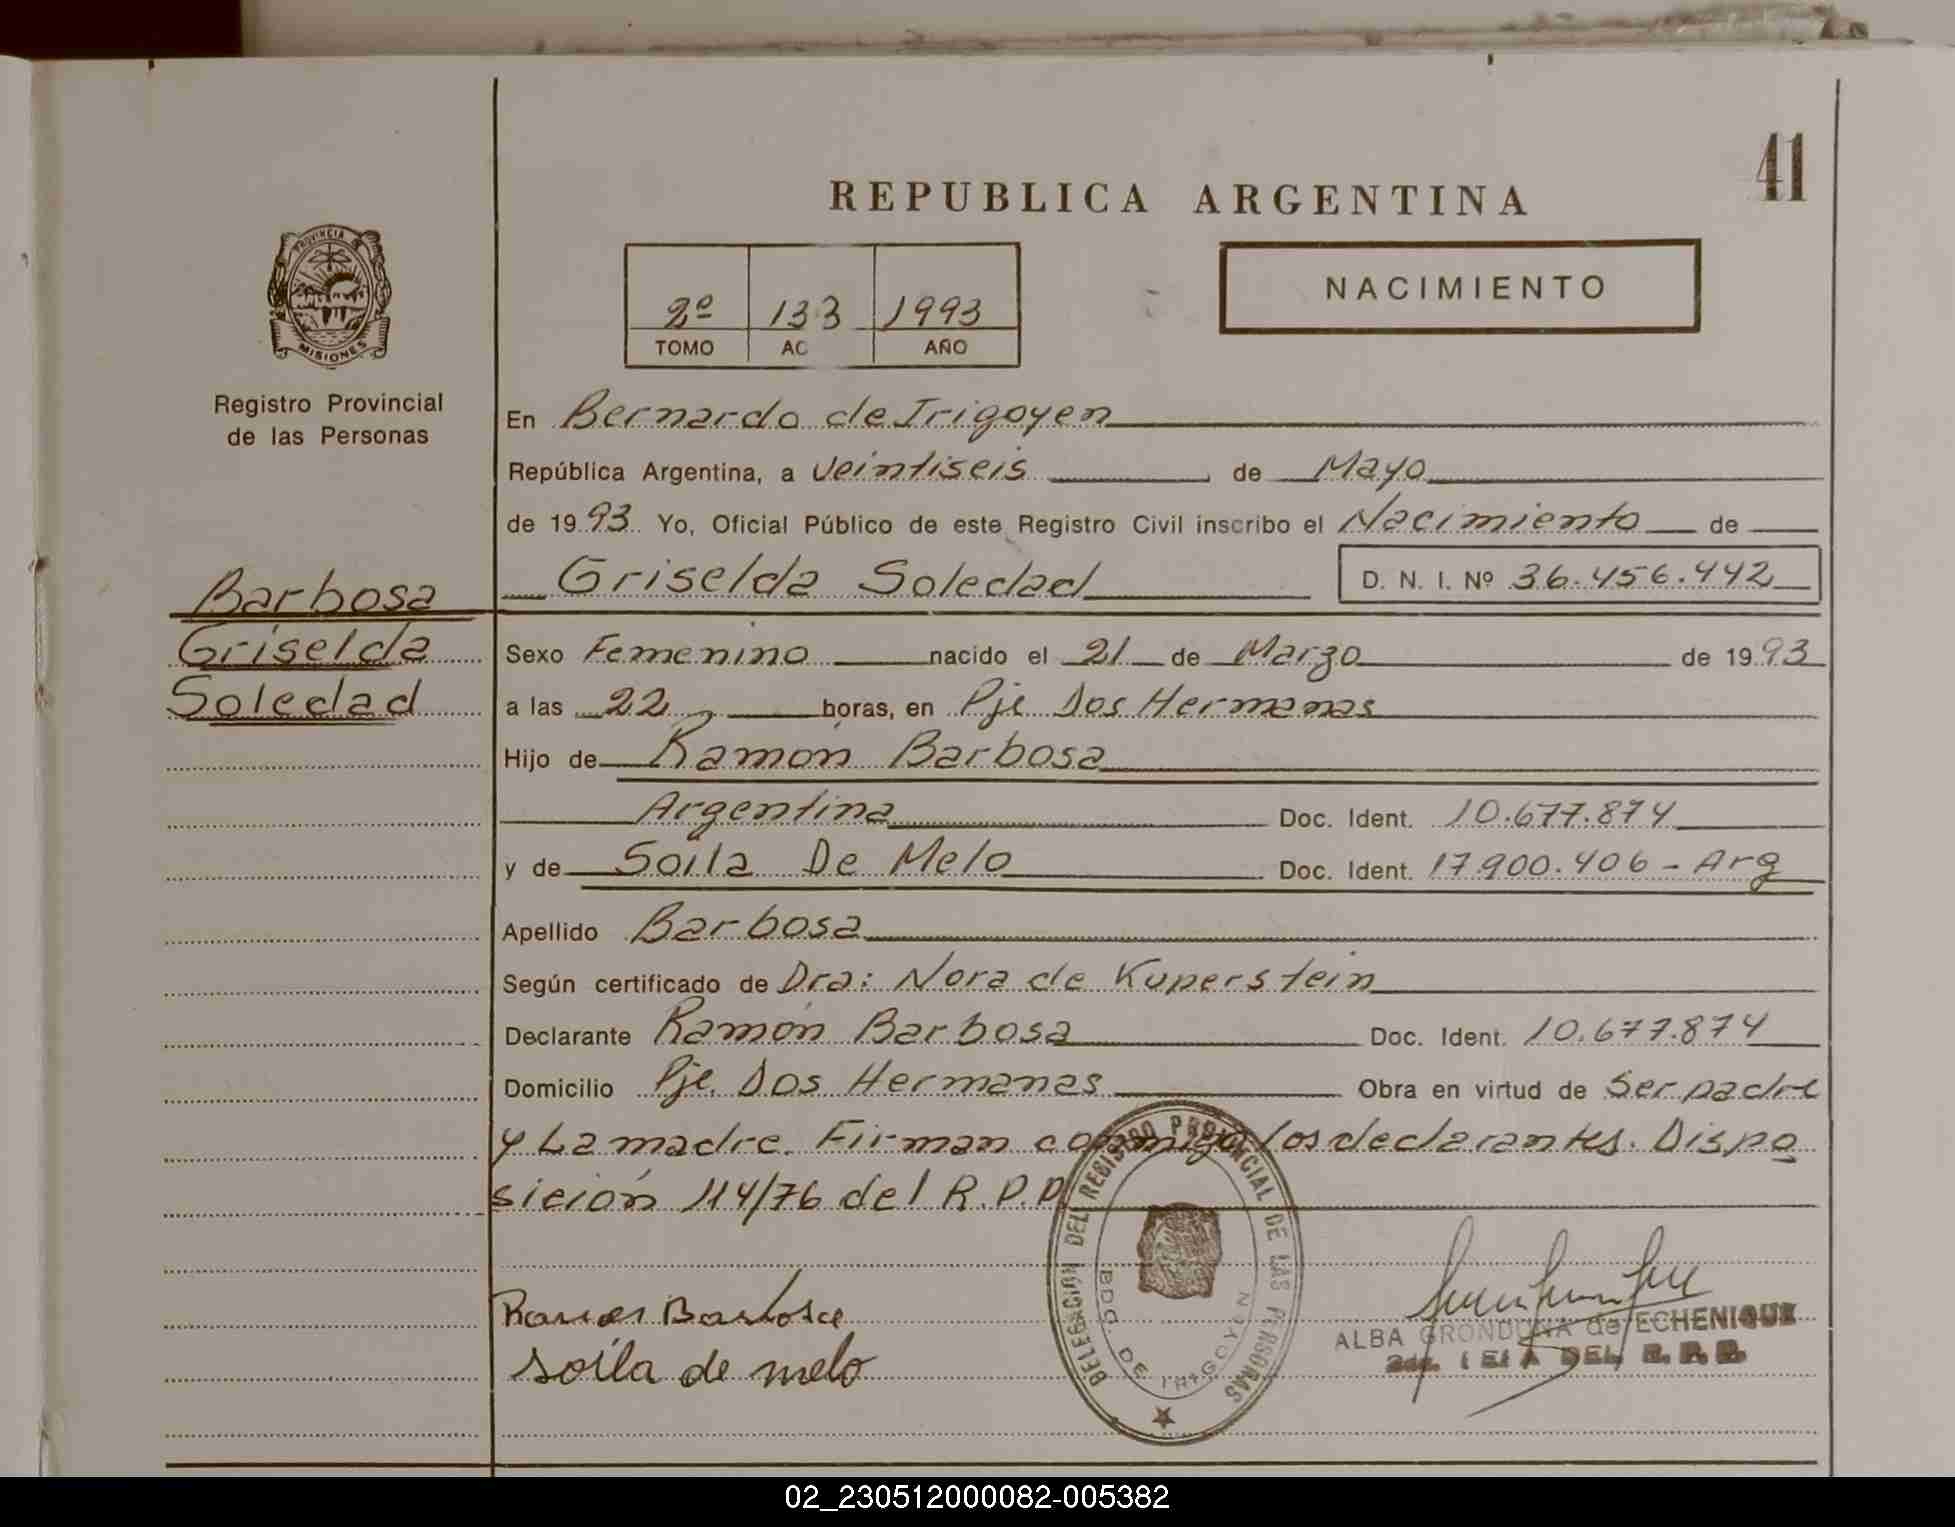 41
REPUBLICA ARGENTINA
PROVINCIA DE
MISIONES
Registro Provincial
de las Personas
2º 133 1993
TOMO AC AÑO
NACIMIENTO
En Bernardo de Irigoyen
República Argentina, a veintiseis de Mayo
de 1993 Yo, Oficial Público de este Registro Civil inscribo el Nacimiento de
Griselda Soledad D. N. I. Nº 36.456.442
Barbosa
Griselda
Soledad
Sexo Femenino nacido el 21 de Marzo de 1993
a las 22 horas, en Pje Dos Hermanas
Hijo de Ramón Barbosa
Argentina Doc. Ident. 10.677.874
y de Soila De Melo Doc. Ident. 17.900.406 - Arg
Apellido Barbosa
Según certificado de Dra: Nora de Kuperstein
Declarante Ramón Barbosa Doc. Ident. 10.677.874
Domicilio Pje. Dos Hermanas Obra en virtud de Ser padre
y La madre. Firman conmigo los declarantes. Dispo
sición 114/76 del R.P.P
DELEGACION DEL REGISTRO PROVINCIAL DE LAS PERSONAS
BDO. DE IRIGOYEN
Ramon Barbosa
soila de melo
ALBA GRONDONA de ECHENIQUE
DEL R.P.P.
02_230512000082-005382